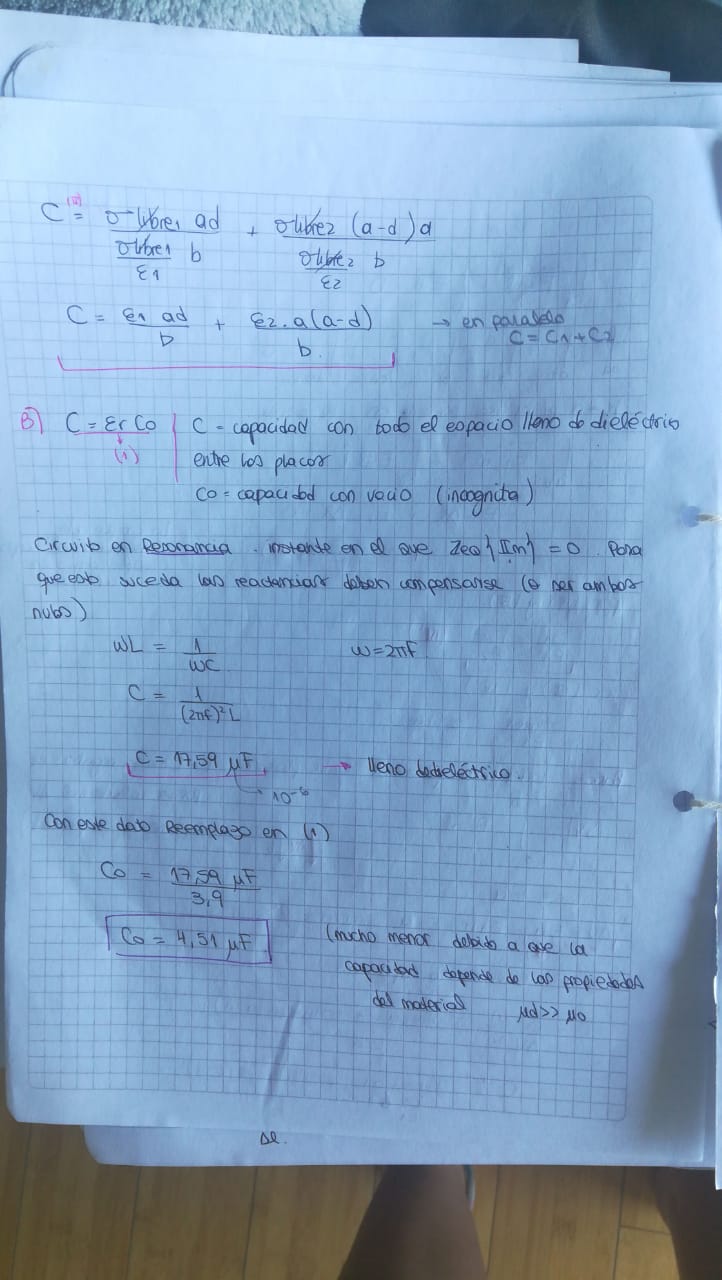 C (II)= σlibre1 ad / (σlibre1/ε1 b) + σlibre2 (a-d)a / (σlibre2/ε2 b)
C = ε1 ad / b + ε2.a(a-d) / b. → en paralelo
C = C1 + C2
B) C = Er Co C = capacidad con todo el espacio lleno de dieléctrico
(1) entre las placas
Co = capacidad con vacio (incognita)
Circuito en Resonancia. instante en el que Zeq {Im} = 0. Para
que esto suceda las reactancias deben compensarse (o ser ambas
nulas)
WL = 1 / WC w=2πf
C = 1 / (2πf)²L
C = 17,59 μF → lleno de dieléctrico.
10⁻⁶
Con este dato Reemplazo en (1)
Co = 17,59 μF / 3,9
Co = 4,51 μF (mucho menor debido a que la
capacidad depende de las propiedades
del material μd>> μo